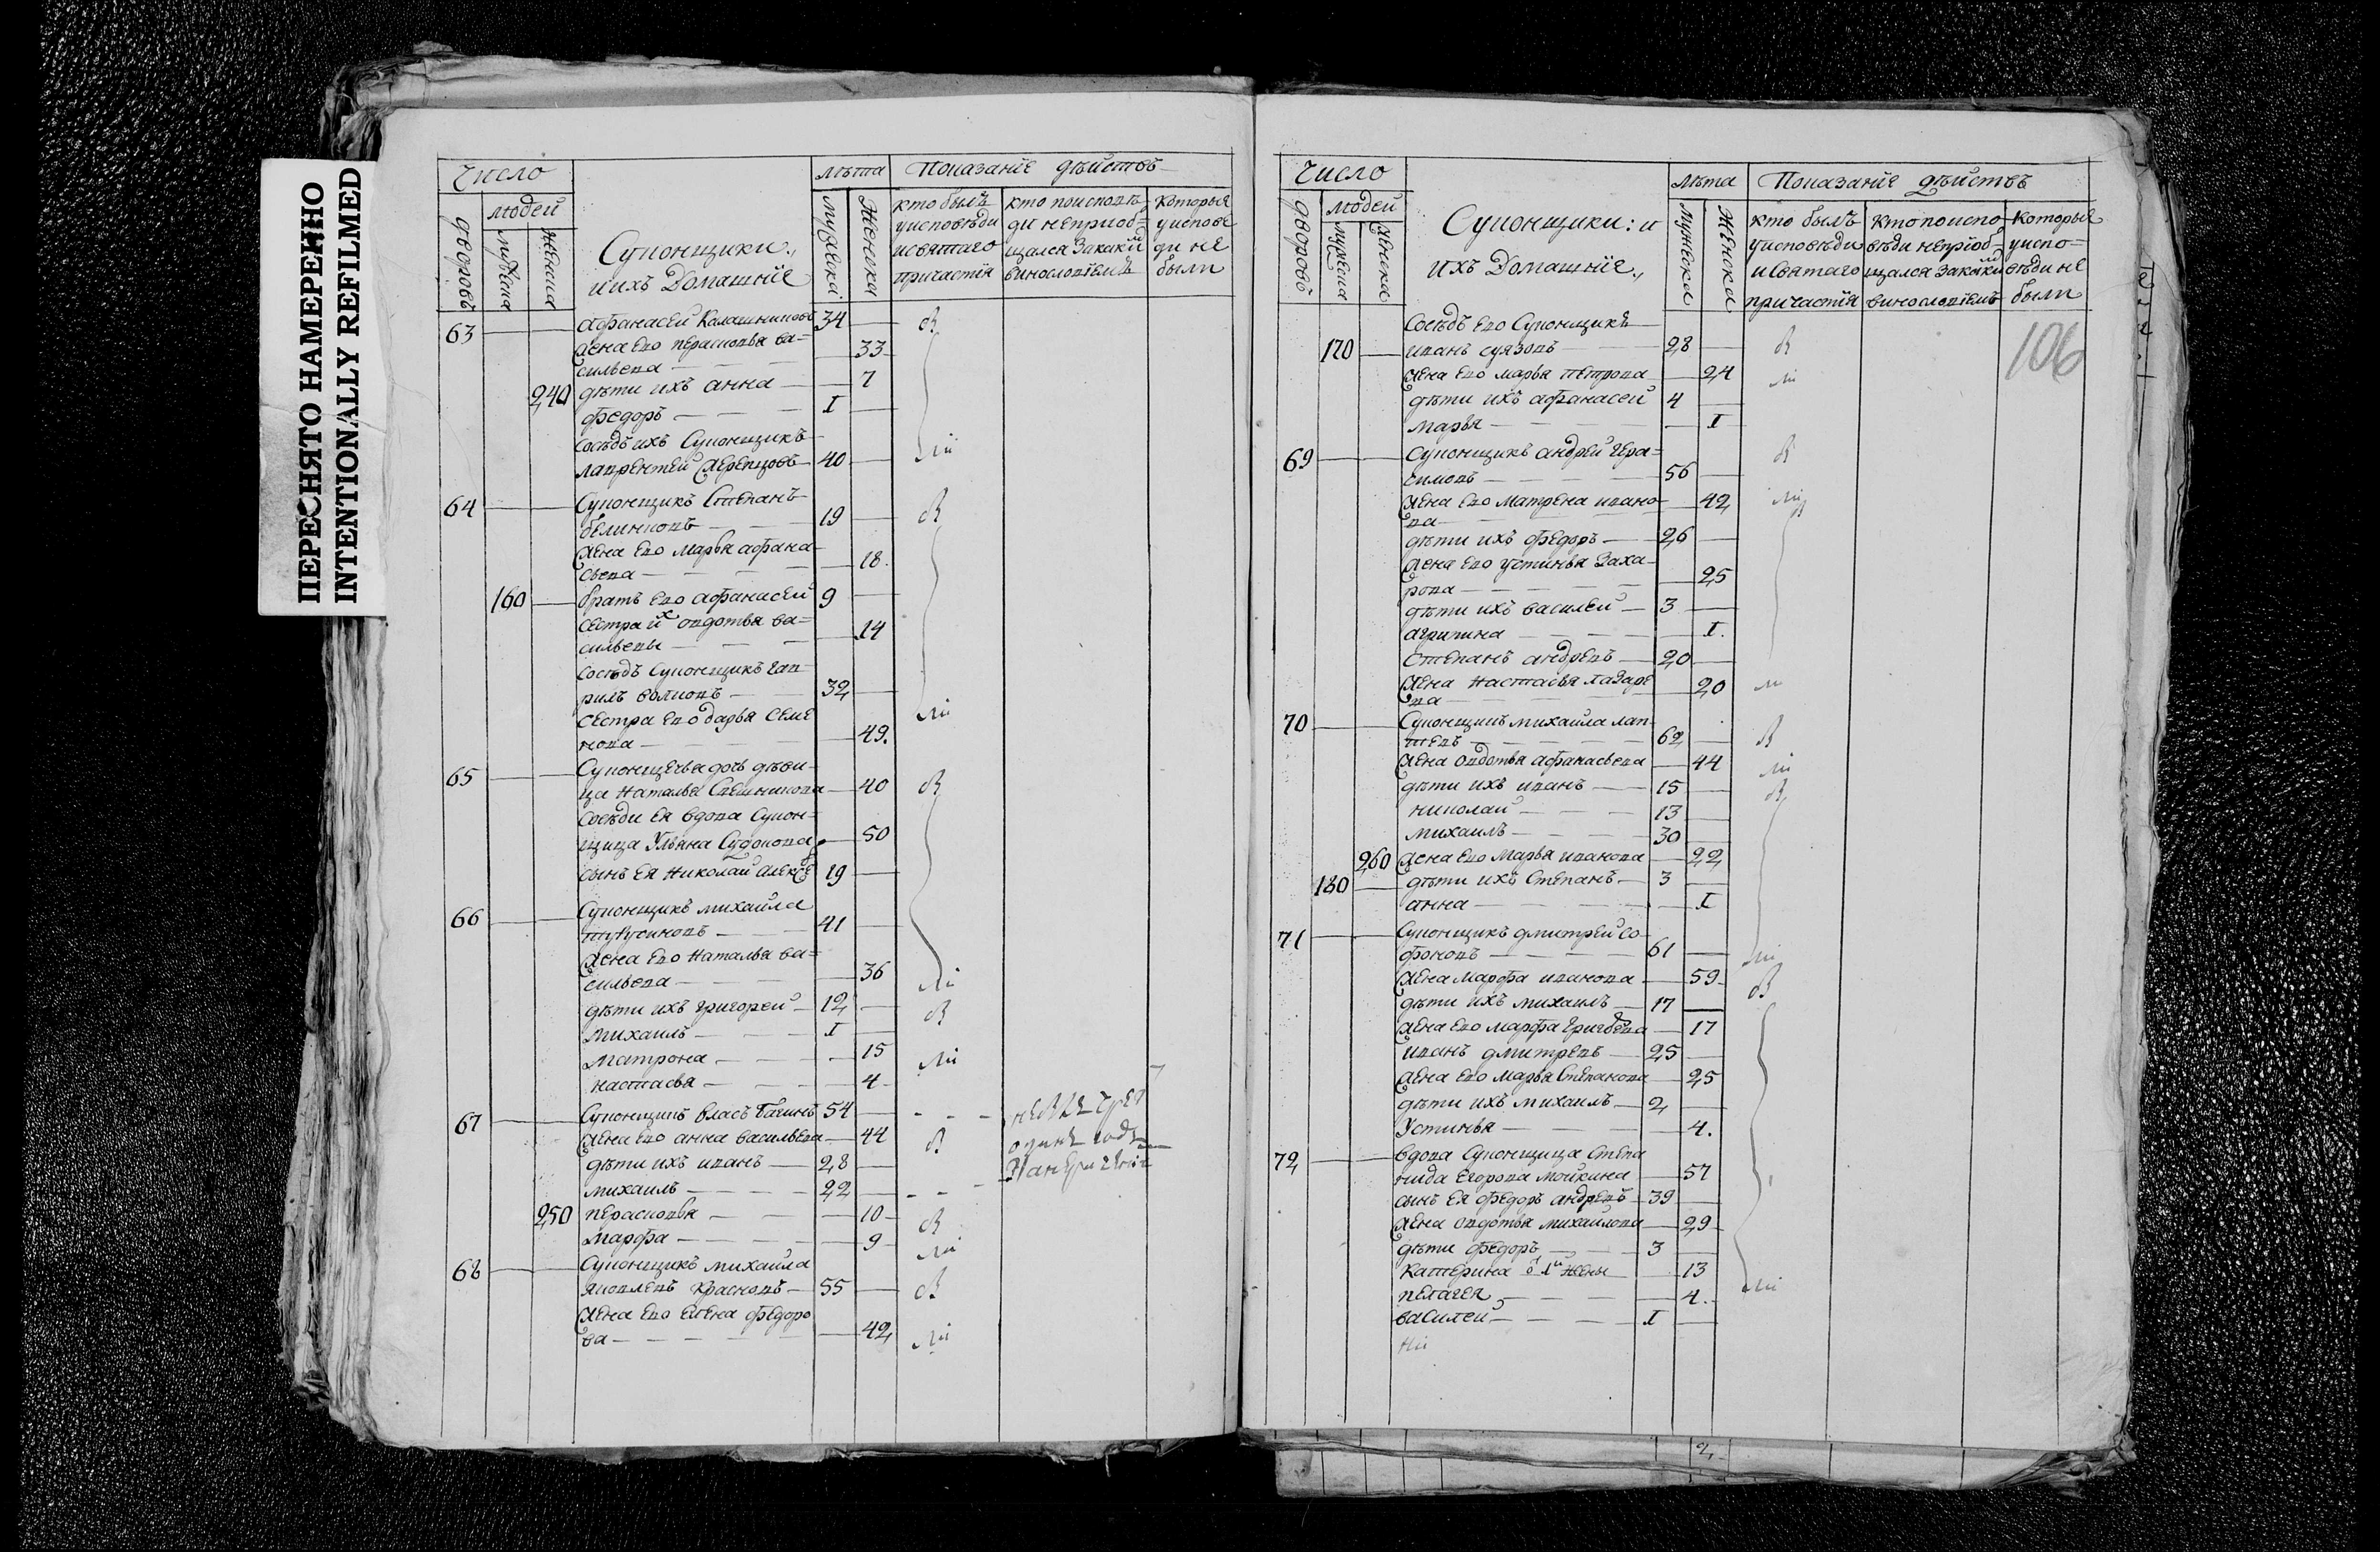 ПЕРЕСНЯТО НАМЕРЕННО
INTENTIONALLY REFILMED
Число
людей
дворовъ
мужеска
женска
Суконщики,
и ихъ Домашнїе
лѣта
мужеска
Женска
Показанїе дѣйствъ
кто былъ
у исповѣди
и святаго
причастїя
кто по исповѣ
ди не прїоб=
щался и за каки
винословїемъ
Которые
у испове
ди не
были
63 Афанасей Калашниковъ 34
жена его перасковья ва=
сильева 33
240 дѣти ихъ анна 7
федоръ I
сосѣдъ ихъ Суконщикъ
лаврентей 40
64 Суконщикъ Степанъ
белинковъ 19
жена его марья афана
сьева 18
160 братъ его афанасей 9
сестра их авдотья ва=
сильевы 14
сосѣдъ суконщикъ гав
рилъ волковъ 32
сестра его дарья семе
нова 49.
65 Суконщечья дочь дѣви
ца наталья 40
Сосѣди ея вдова Сукон=
щица Ульяна 50
сынъ ея николай алексѣ 19
66 Суконщикъ михайла
41
жена его наталья ва=
сильева 36
дѣти ихъ григорей 12
михаилъ I
матрона 15
настасья 4
67 Суконщикъ власъ 54
жена его анна васильева 44
дѣти ихъ иванъ 28
михаилъ 22
250 перасковья 10
марфа 9
68 Суконщикъ михайла
яковлевъ красновъ 55
жена его елена федоро
ва 42
Число
людей
дворовъ
мужеска
женска
Суконщики: и
ихъ Домашнїе,
лѣта
мужеска
Женска
Показанїе дѣйствъ
кто былъ
у исповѣди
и святаго
причастїя
Кто по испо
вѣди не прїоб=
щался и за каки
винословїемъ
Которые
у испо=
вѣди не
были
106
Сосѣдъ его Суконщикъ
170 иванъ сузовъ 28
жена его марья петрова 24
дѣти ихъ афанасей 4
марья I
69 Суконщикъ андрей гера=
симовъ 56
жена его матрена ивано
ва 42
дѣти ихъ федоръ 26
жена его устинья Заха
рова 25
дѣти ихъ василей 3
агрипина I.
степанъ андревъ 20
жена настасья лазаре
ва 20
70 Суконщикъ михайла лап
тевъ 62
жена авдотья афанасьева 44
дѣти ихъ иванъ 15
николай 13
михаилъ 30
260 жена его марья иванова 22
180 дѣти ихъ степанъ 3
анна I
71 Суконщикъ дмитрей со
фоновъ 61
жена марфа иванова 59
дѣти ихъ михаилъ 17
жена его марфа григорева 17
иванъ дмитревъ 25
жена его марья степанова 25
дѣти ихъ михаилъ 2
Устинья 4.
72 вдова Суконщица степа
нида Егорова мойкина 57
сынъ ея федоръ андревъ 39
жена авдотья михайлова 29
дѣти федоръ 3
катерина от 1й жены 13
пелагея 4.
василей I